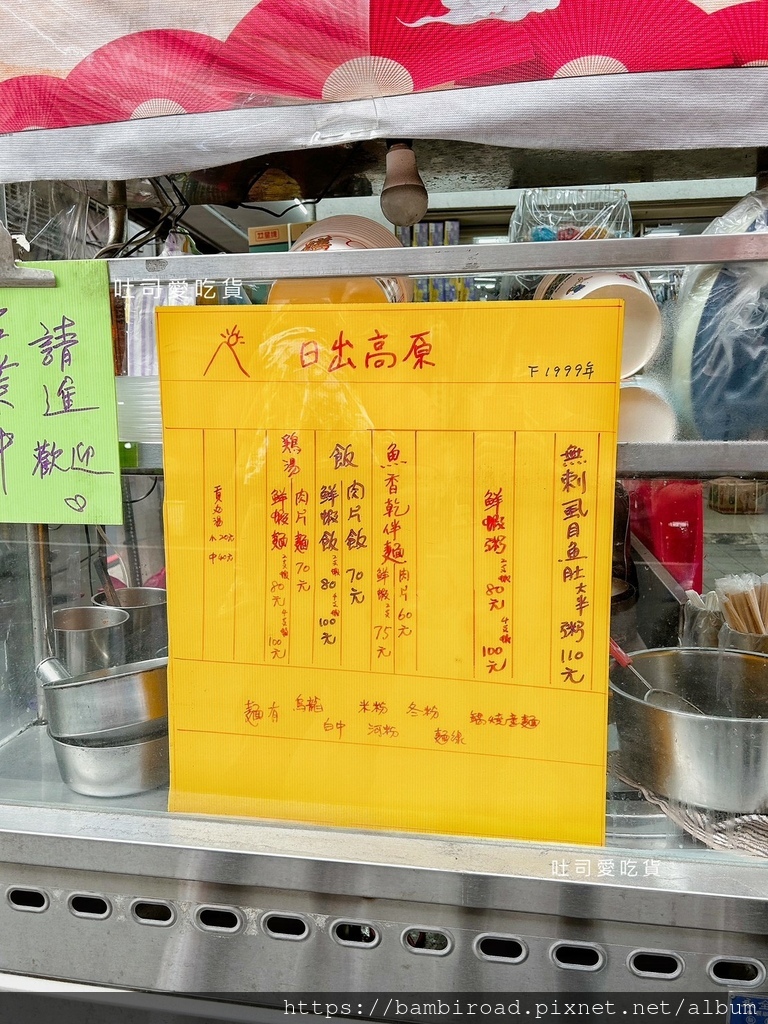 日出高原
1999年
無刺虱目魚肚大半粥 110元
鮮蝦粥 2支蝦 80元 4支蝦 100元
魚香乾伴麵 肉片 60元
鮮蝦 2支 75元
飯
肉片飯 70元
鮮蝦飯 2支蝦 80 4支蝦 100元
鷄湯
肉片麵 70元
鮮蝦麵 2支蝦 80元 4支蝦 100元
貢丸湯
小 20元
中 40元
麵有 烏龍 米粉 冬粉 鍋燒意麵
白中 河粉 麵線
請進
歡迎
吐司愛吃貨
吐司愛吃貨
https://bambiroad.pixnet.net/album